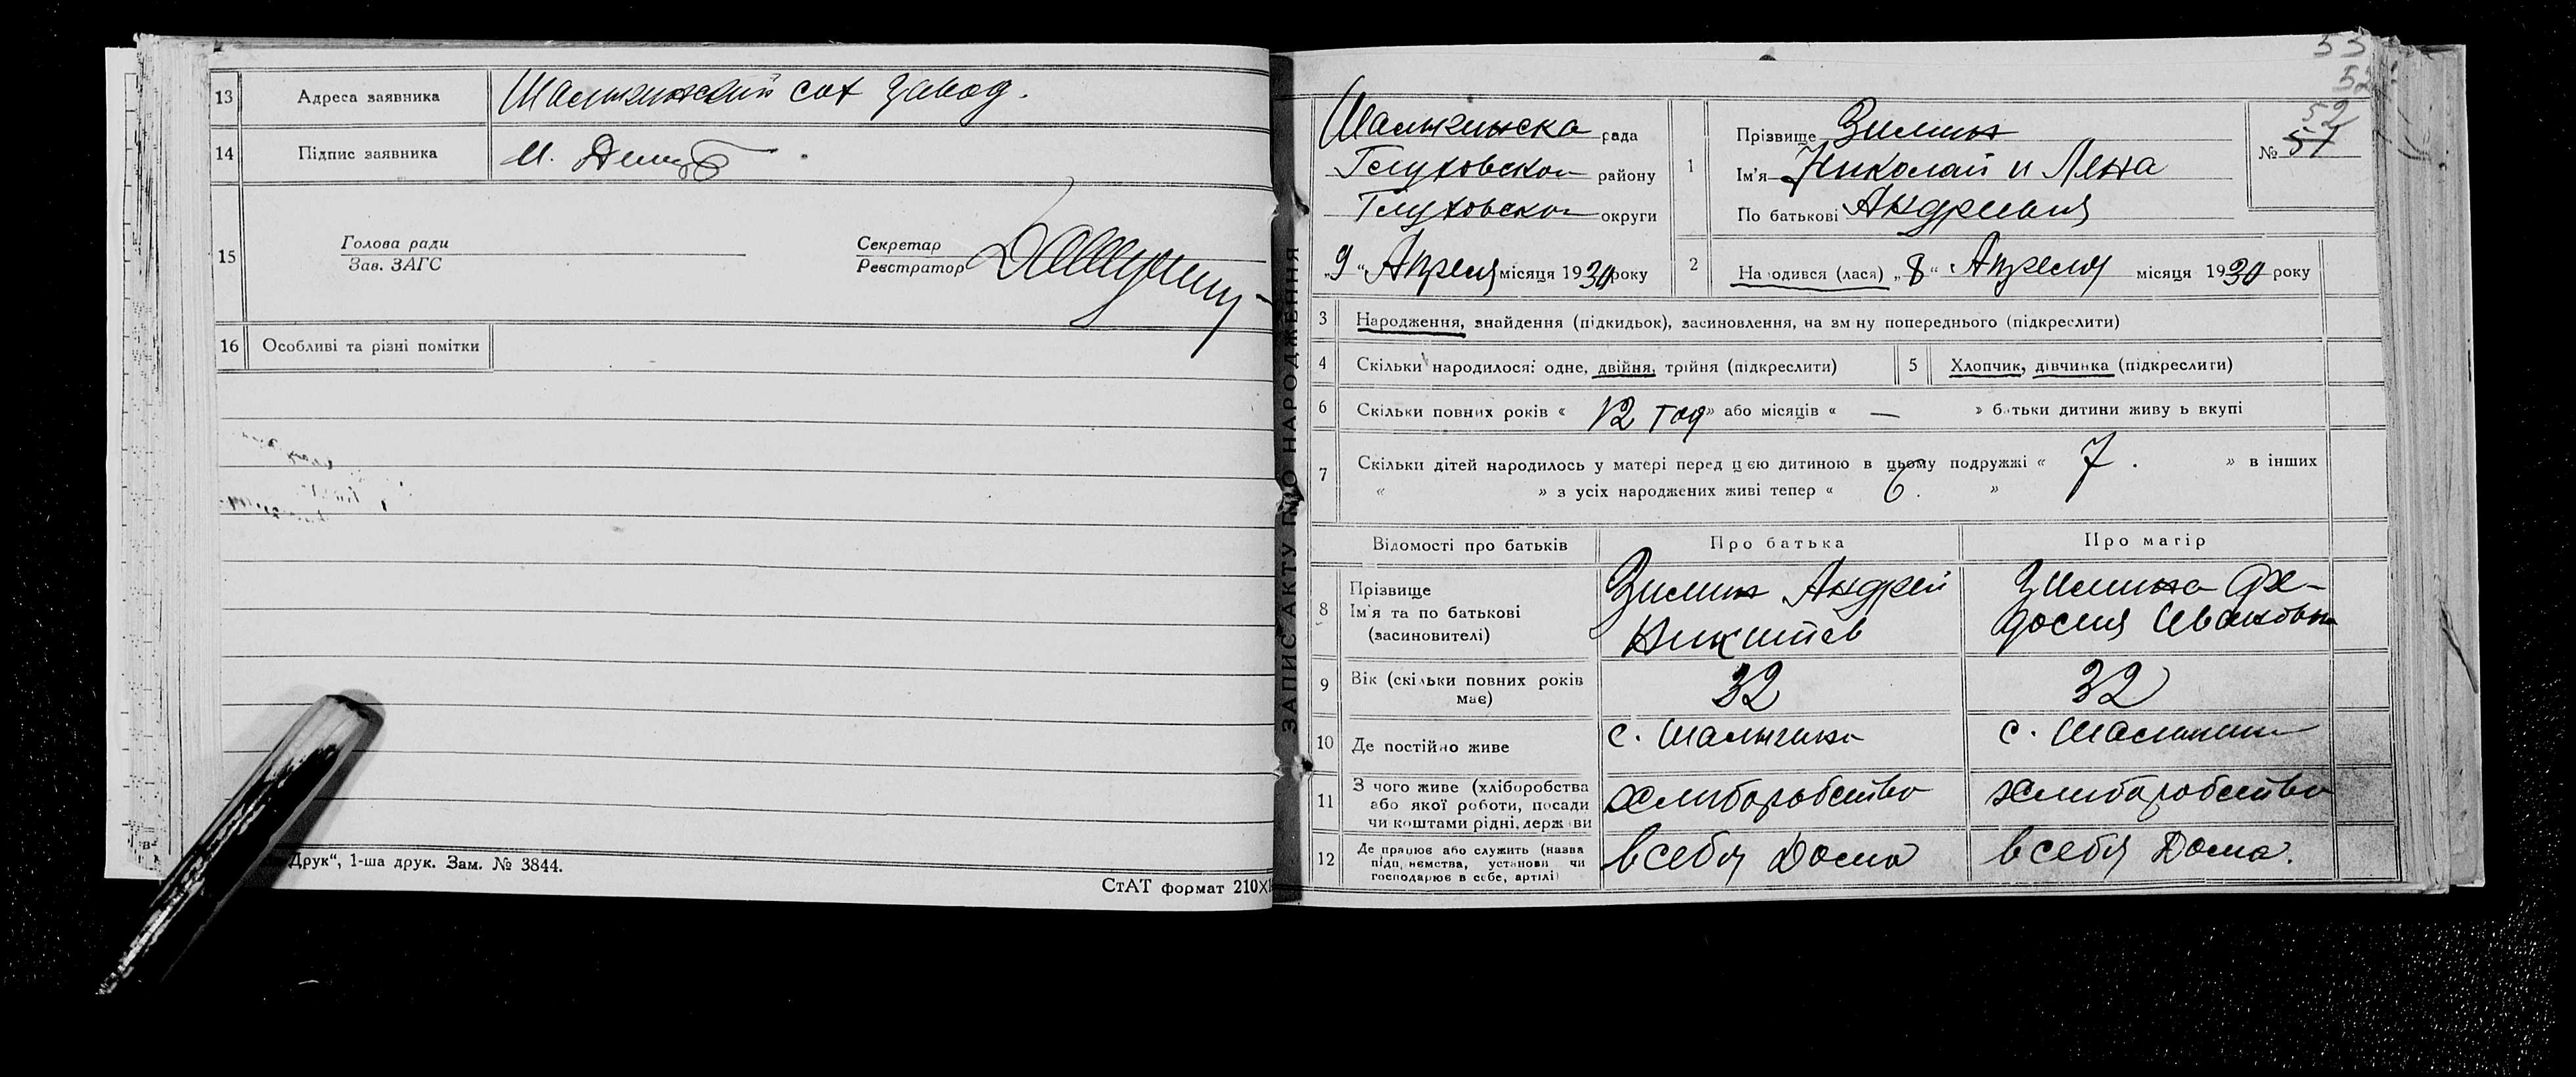 13 Адреса заявника Шалыгинский сах завод.
14 Підпис заявника И.
15 Голова ради
Зав. ЗАГС
Секретар
Реєстратор
16 Особливі та різні помітки
Друк“, 1-ша друк. Зам. № 3844.
СтАТ формат 210X
ЗАПИС АКТУ ПРО НАРОДЖЕННЯ
53
52
52
№ 51
Шалыгинска рада
Глуховскои району
Глуховскои округи
„9“ Апреля місяця 1930 року
1 Прізвище Зилин
Ім'я Николай и Лена
По батькові Андриевич
2 На одився (лася) „8“ Апреля місяця 1930 року
3 Народження, знайдення (підкидьок), засиновлення, на зм ну попереднього (підкреслити)
4 Скільки народилося: одне, двійня, трійня (підкреслити) 5 Хлопчик, дівчинка (підкреслити)
6 Скільки повних років « 12 год » або місяців « — » батьки дитини живу ь вкупі
7 Скільки дітей народилось у матері перед цією дитиною в цьому подружжі « 7. » в інших
« » з усіх народжених живі тепер « 6. »
Відомості про батьків Про батька Про матір
8 Прізвище
Ім'я та по батькові
(засиновителі)
Зилин Андрей
Никитов
Зилина Фе-
досия Ивановна
9 Вік (скільки повних років
має)
32 32
10 Де постійно живе с. Шалыгино с. Шалыгино
11 З чого живе (хліборобства
або якої роботи, посади
чи коштами рідні, держ ви
хлиборобство хлиборобство
12 Де працює або служить (назва
підп, немства, установи чи
господарює в себе, артілі)
всебя Дома всебя Дома.